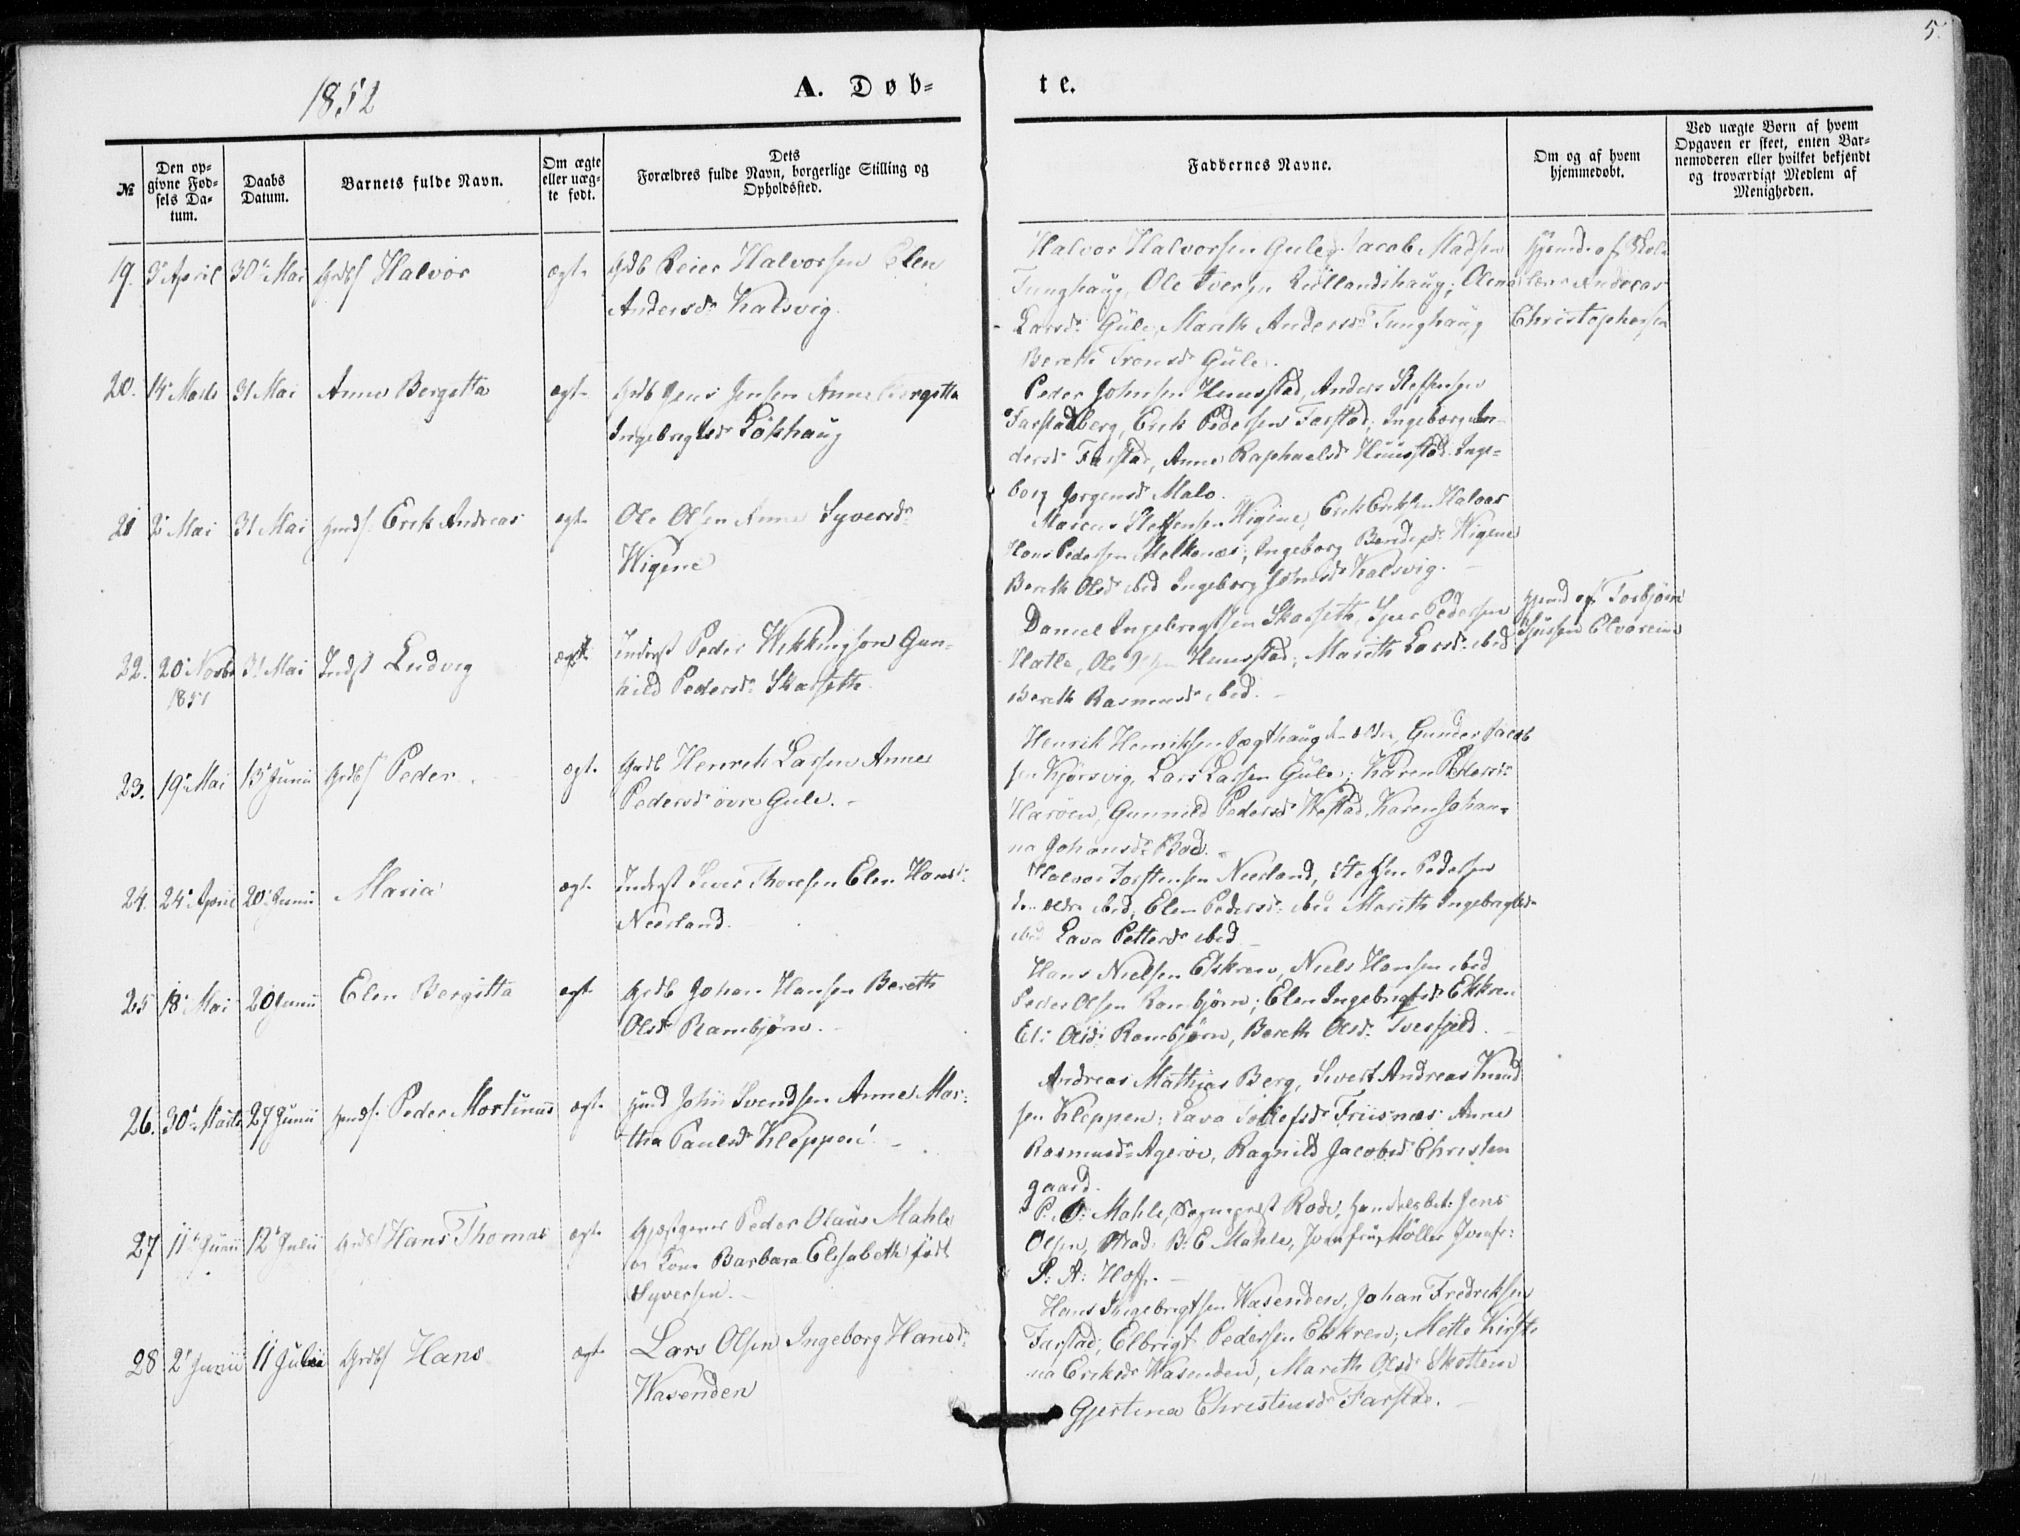 5.
1852
A. Døb-
te.
№
Den op-
givne Fød-
sels Da-
tum.
Daabs
Datum.
Barnets fulde Navn.
Om ægte
eller uæg-
te født.
Dets
Forældres fulde Navn, borgerlige Stilling og
Opholdssted.
Faddernes Navne.
Om og af hvem
hjemmedøbt.
Ved uægte Børn af hvem
Opgaven er skeet, enten Bar-
nemoderen eller hvilket bekjendt
og troværdigt Medlem af
Menigheden.
19. 3 April 30 Mai Grdbs Halvor
ægte
Grdb Reier Halvorsen Elen
Andersd: Kalsvig.
Halvor Halvorsen Gule, Jacob Madsen
Tunghaug, Ole Iversen Rødlandshaug; Olena
Larsd: Gule, Marith Andersd: Tunghaug
Bereth Tronsd: Gule.
Hjemd: af Skole
lærer Andreas
Christophersen
20. 14 Marts 31 Mai Anne Bergitta
ægte
Grdb Jens Jensen Anne Bergitta
Ingebrigtsd: Løkhaug
Peder Johnsen Huusstad, Anders Steffensen
Farstadberg, Erik Pedersen Farstad; Ingeborg An-
dersd: Farstad, Anne Raphaelsd: Huusstad Inge-
borg Jørgensd: Malo.
21 2 Mai 31 Mai Huusm. Erik Andreas
ægte
Ole Olsen Anne Syversd:
Wigene
Marcus Steffensen Wigene, Erik Eriksen Halaas
Hans Pedersen Melkenæs; Ingeborg Bendixsd: Wigene
Bereth Olsd: ibid Ingeborg Johnsd: Kalsvig.
22. 20 Novbr 31 Mai Indst Ludvig
1851
ægte
Inderst Peder Wikkingson Gun-
hild Pedersd: Skarseth.
Daniel Ingebrigtsen Skarseth, Iver Pedersen
Hatle, Ole Olsen Huusstad; Marith Larsd: ibid
Bereth Rasmusd: ibid.
Hjemd: af Torbjørn
Elvereim
23. 19 Mai 13 Junii Grdbs Peder
ægte
Grdb Henrik Larsen Anne
Pedersd: øvre Gule.
Henrik Henriksen Vægthaug den ældre, Gunder Jacob
sen Kjørsvig, Lars Larsen Gule; Karen Pedersd:
Harøen, Gunnild Pedersd: Westad, Karen Johan-
na Johansd: Bod.
24. 24 April 20 Junii Maria
ægte
Inderst Iver Thoresen Elen Hansd:
Neerland.
Halvor Torstensen Neerland, Steffen Pedersen
den ældre ibid; Elen Pedersd: ibid Marith Ingebrigtsd:
ibid Lava Pettersd: ibid
25 18 Mai 20 Junii Elen Bergitta
ægte
Grdb Johan Hansen Bereth
Olsd: Rambjørn.
Hans Nielsen Ekkren, Niels Hansen ibid
Peder Olsen Rambjørn; Elen Ingebrigtsd: Ekkren
Eli Olsd: Rambjørn, Bereth Olsd: Tverfjeld.
26. 30 Marts 27 Junii Huusm: Peder Martinus
ægte
Huusmd John Svendsen Anne Mar-
tha Paulsd: Kleppen.
Andreas Mathias Berg, Sivert Andreas Knud
sen Kleppen; Lava Tollefsd: Friisnæs Anne
Rasmusd: Agerøe, Ragnild Jacobsd: Christen
gaard.
27 11 Junii 12 Julii Grdbs Hans Thomas
ægte
Gjæstgiver Peder Olaus Mahle
og Kone Barbara Elisabeth født
Syversen.
P: O: Mahle, Sogneprest Rode, Handelsbet: Jens
Olsen, Mad: B: E Mahle, Jomfru Møller Jomfr:
S: A: Hoff.
28 2 Junii 11 Julii Grdbs Hans
ægte
Lars Olsen Ingeborg Hansd:
Wasenden
Hans Ingebrigtsen Wasenden, Johan Fredriksen
Farstad, Elbrigt Pedersen Ekkren; Mette Kirsti-
na Eriksd: Wasenden, Mareth Olsd: Skotten
Gjertina Christensd: Farstad.